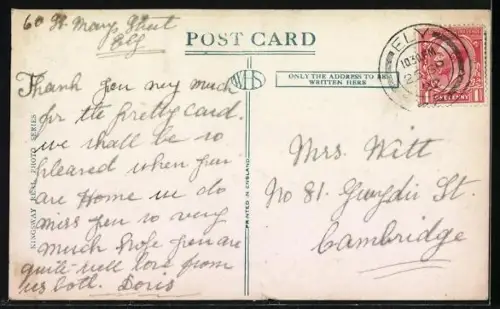 60 St. Marys Street
Ely
POST CARD
WHS
ONLY THE ADDRESS TO BE
WRITTEN HERE
ELY
10.30 AM
ONE PENNY
Thank you very much
for the pretty card.
we shall be so
pleased when you
are Home we do
miss you so very
much hope you are
quite well love from
us both. Doris
KINGSWAY REAL PHOTO SERIES
PRINTED IN ENGLAND
Mrs. Witt
No 81. Gwydir St.
Cambridge